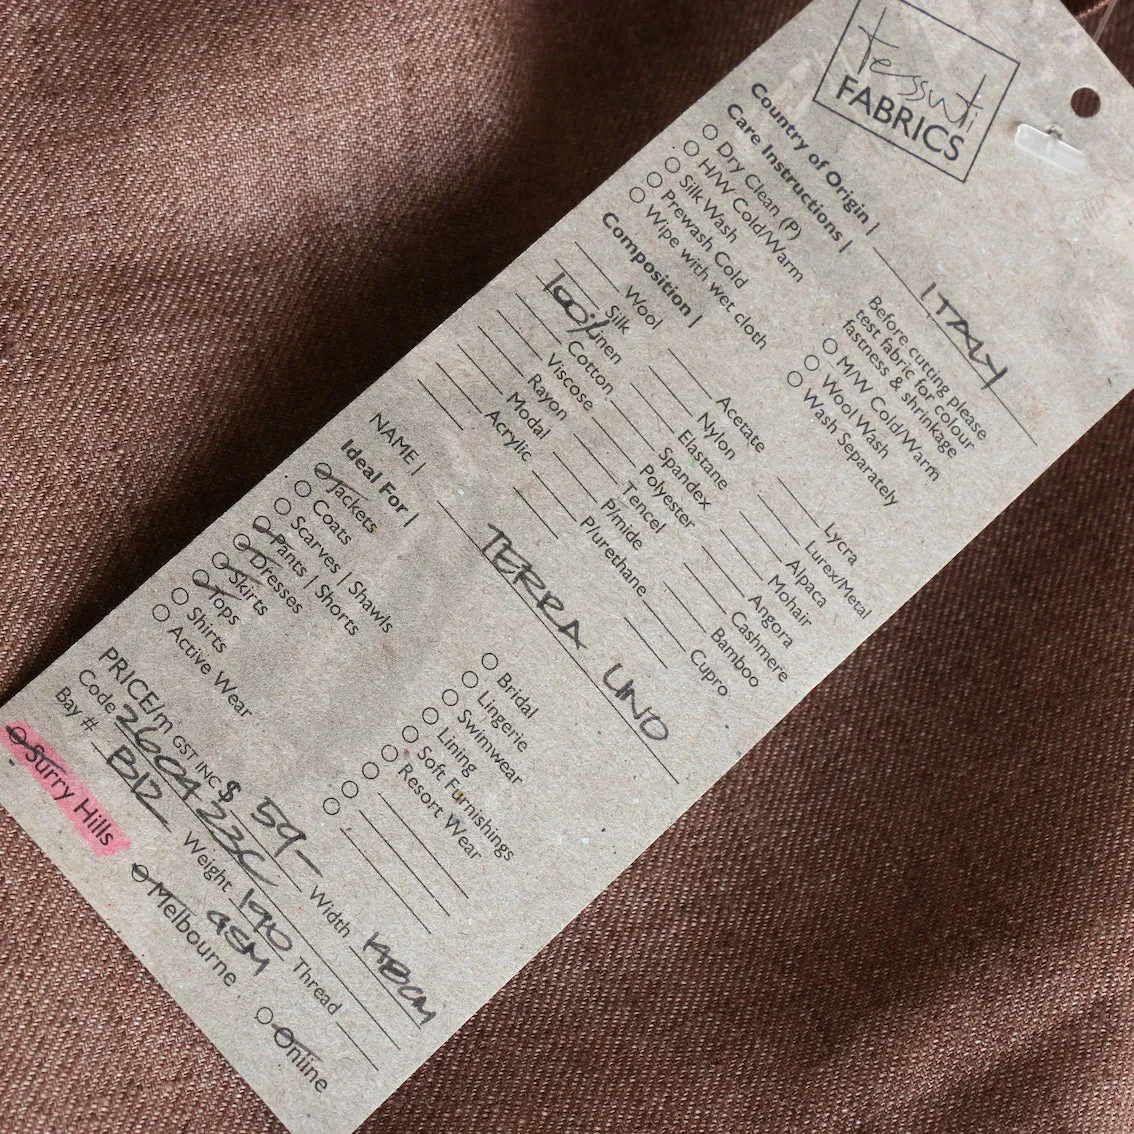 tessuti
FABRICS
Country of Origin | ITALY
Care Instructions |
Dry Clean (P)
H/W Cold/Warm
Silk Wash
Prewash Cold
Wipe with wet cloth
Before cutting please
test fabric for colour
fastness & shrinkage
M/W Cold/Warm
Wool Wash
Wash Separately
Composition |
Wool
Silk
100% Linen
Cotton
Viscose
Rayon
Modal
Acrylic
Acetate
Nylon
Elastane
Spandex
Polyester
Tencel
P/mide
P/urethane
Lycra
Lurex/Metal
Alpaca
Mohair
Angora
Cashmere
Bamboo
Cupro
NAME | TERRA UNO
Ideal For |
Jackets
Coats
Scarves | Shawls
Pants | Shorts
Dresses
Skirts
Tops
Shirts
Active Wear
Bridal
Lingerie
Swimwear
Lining
Soft Furnishings
Resort Wear
PRICE/m GST INC $ 59- Width
Code Weight 190 GSM Thread
Bay # B12
Surry Hills Melbourne Online